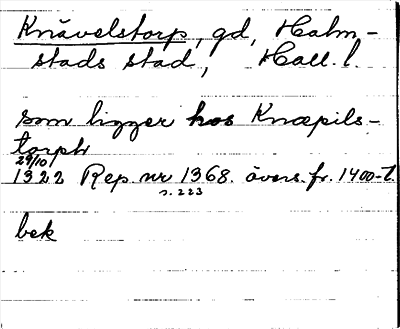 Knävelstorp, gd, Halm-
stads stad, Hall. l.
som ligger hos Knæpils-
torph
29/10
1322 Rep. nr 1368. övers. fr. 1400-t.
s. 223
bek